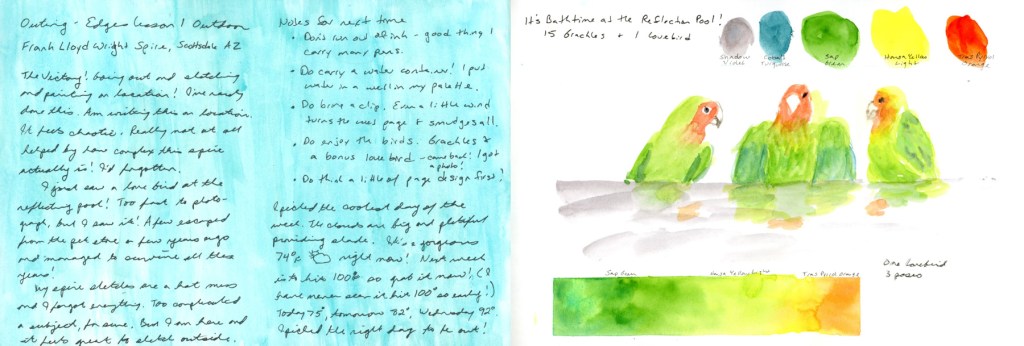 Outing - Edges Lesson 1 Outdoor
Frank Lloyd Wright Spire, Scottsdale AZ
The Victory! Going out and sketching
and painting on location! I've rarely
done this. Am writing this on location.
It feels chaotic. Really not at all
helped by how complex this spire
actually is! I'd forgotten.
I just saw a love bird at the
reflecting pool! Too fast to photo-
graph, but I saw it! A few escaped
from the pet store a few years ago
and managed to survive all these
years!
My spire sketches are a hot mess
and I forgot everything. Too complicated
a subject, for sure. But I am here and
it feels great to sketch outside.
Notes for next time
• Don't run out of ink - good thing I
carry many pens.
• Do carry a water container! I put
water in a well in my palette.
• Do bring a clip. Even a little wind
turns the page + smudges all.
• Do enjoy the birds. Grackles &
a bonus love bird - came back! I got
a photo!
• Do think a little of page design first!
I picked the coolest day of the
week. The clouds are big and plentiful
providing shade. It's a gorgeous
74°F right now! Next week
is to hit 100° so grab it now! (I
have never seen it hit 100° so early!)
Today 75°, tomorrow 82°, Wednesday 92°.
I picked the right day to be out!
It's Bathtime at the Reflection Pool!
15 Grackles + 1 Lovebird
Shadow
Violet
Cobalt
Turquoise
Sap
Green
Hansa Yellow
Light
Trans Pyrrol
Orange
Sap Green
Hansa Yellow Light
Trans Pyrrol Orange
One lovebird
3 poses